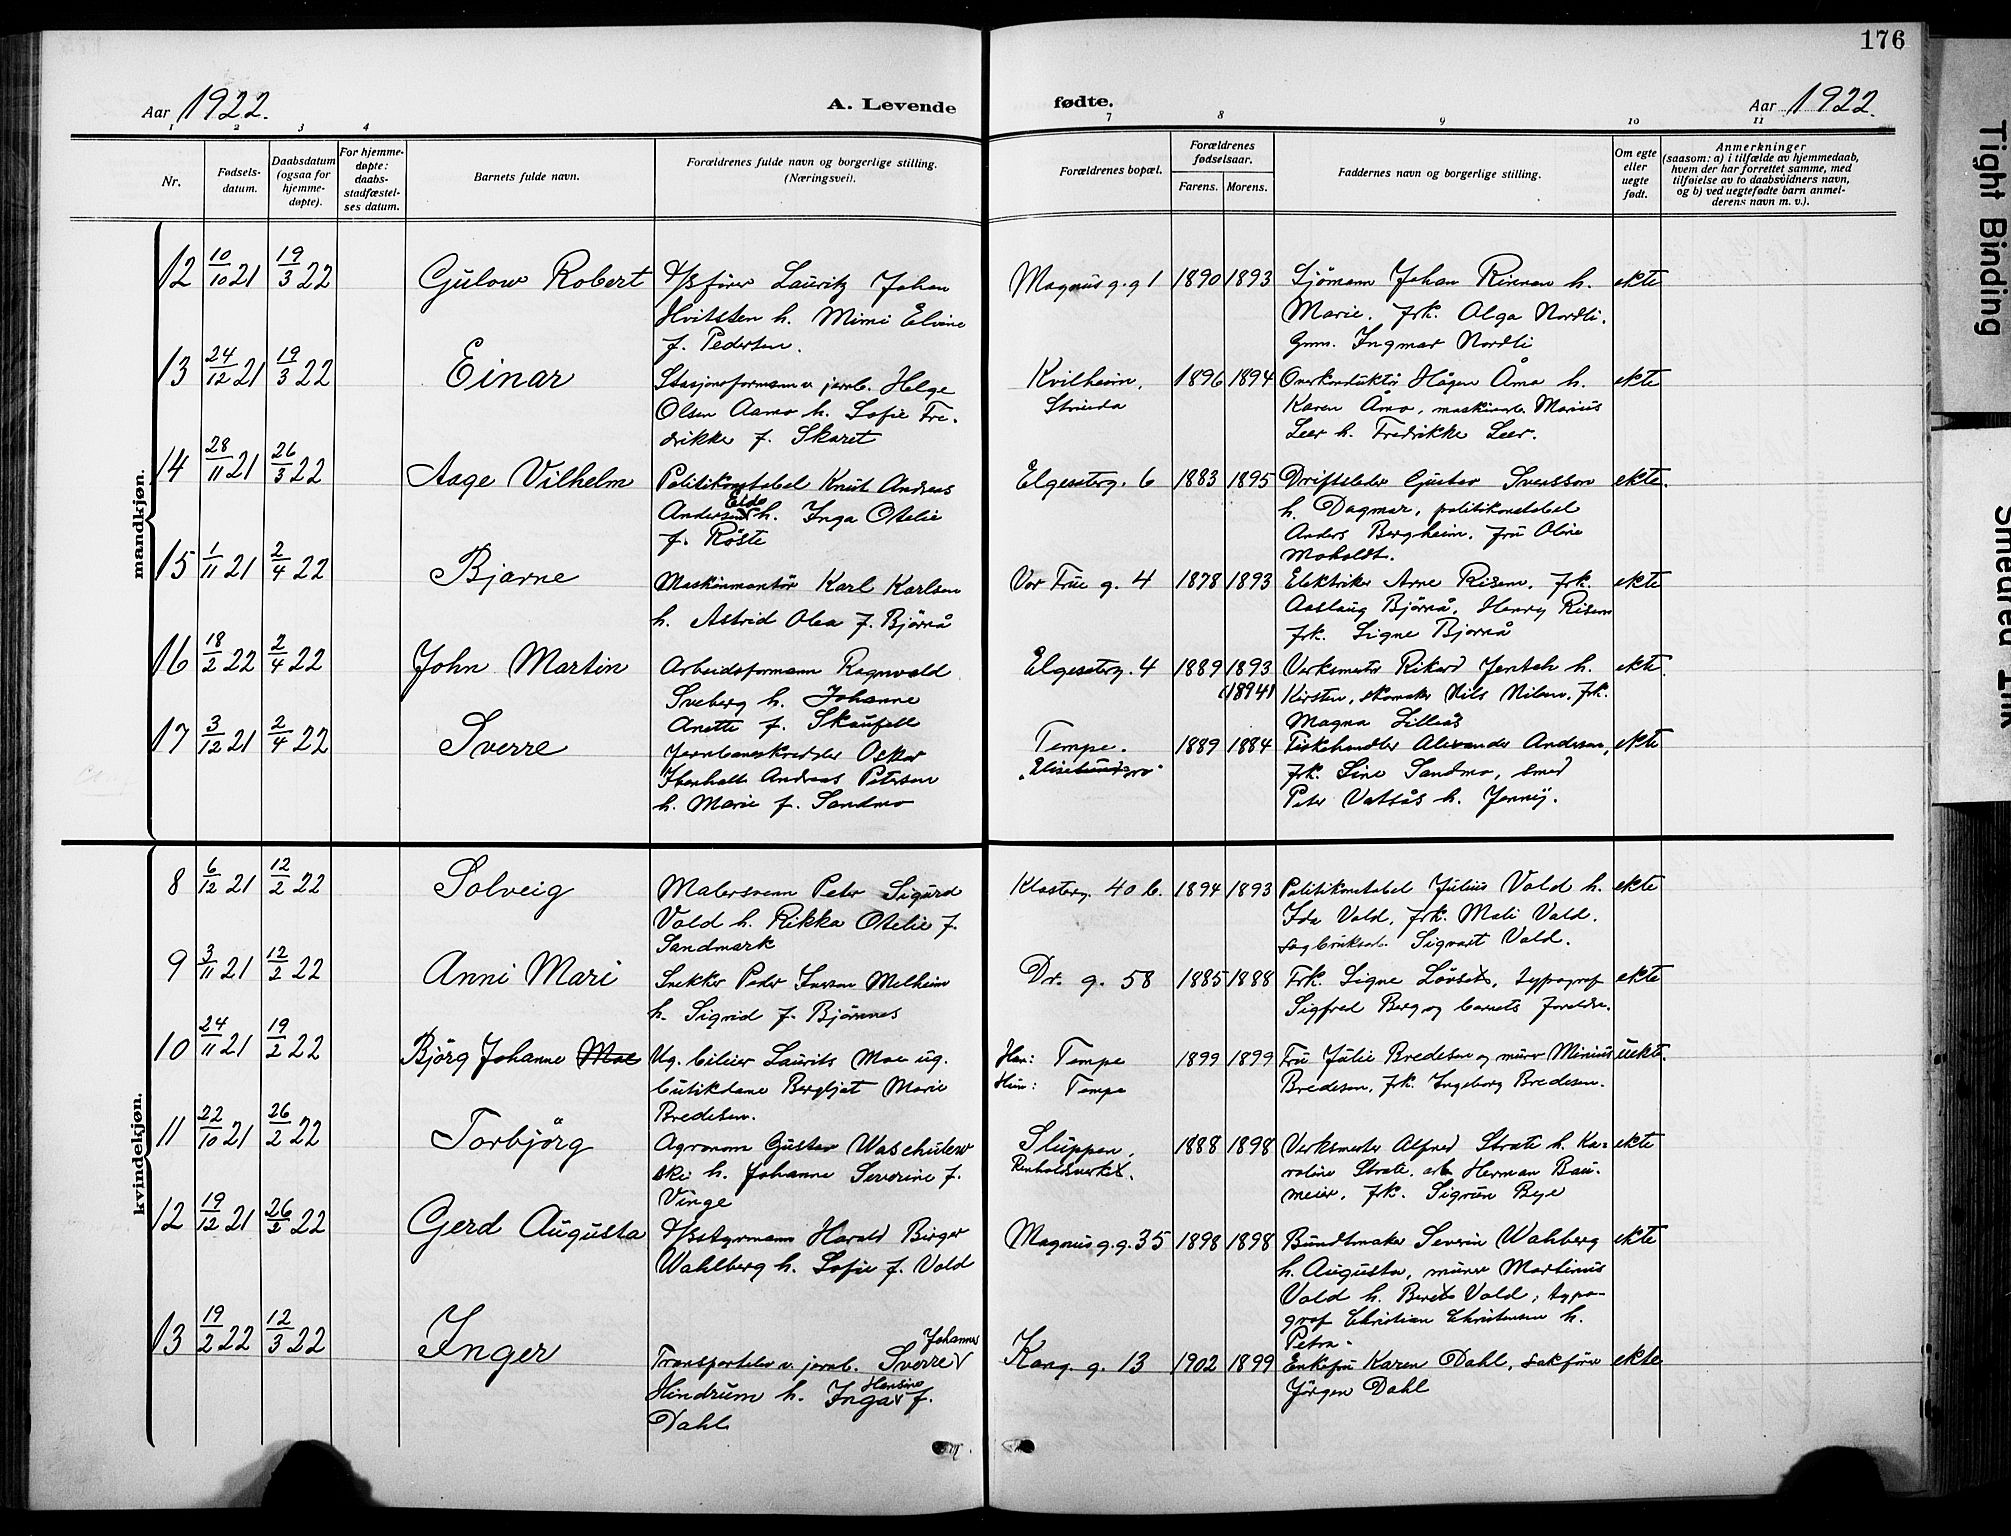 176
Aar 1922.
A. Levende
fødte.
Aar 1922.
1 2 3 4
7 8 9 10 11
Nr.
Fødsels-
datum.
Daabsdatum
(ogsaa for
hjemme-
døpte).
For hjemme-
døpte:
daabs-
stadfæstel-
ses datum.
Barnets fulde navn.
Forældrenes fulde navn og borgerlige stilling.
(Næringsvei).
Forældrenes bopæl.
Forældrenes
fødselsaar.
Farens. Morens.
Faddernes navn og borgerlige stilling.
Om egte
eller
uegte
født.
Anmerkninger
(saasom: a) i tilfælde av hjemmedaab,
hvem der har forrettet samme, med
tilføielse av to daabsvidners navn,
og b) ved uegtefødte barn anmel-
derens navn m. v.).
mandkjøn.
12 10/10 21 19/3 22 Gulow Robert
D/S fører Lauritz Johan
Hvitsten h. Mimi Elvine
f. Pedersen.
Magnus g. g 1 1890 1893
Sjömann Johan Rinnan h.
Marie. frk. Olga Nordli.
Gmn. Ingmar Nordli
ekte
13 24/12 21 19/3 22 Einar
Stasjonsformann v. jernb. Helge
Olsen Aamo h. Sofie Fre-
drikke f. Skaret
Kvilheim,
Strinda
1896 1894
Overkonduktör Hågen Åmo h.
Karen Åmo, maskinarb. Marius
Leer h. Fredrikke Leer.
ekte
14 28/11 21 26/3 22 Aage Vilhelm
Politikonstabel Knut Andreas
Andersen Eldo h. Inga Otelie
f. Röste
Elgesæterg. 6 1883 1895
Driftsleder Gustav Svensson
h. Dagmar, politikonstabel
Anders Bergheim. fru Oline
Moholdt.
ekte.
15 1/11 21 2/4 22 Bjarne
Maskinmontör Karl Karlsen
h. Astrid Olea f. Björnå
Vor Frue g. 4 1878 1893
Elektriker Arne Risem, frk.
Aaslaug Björnå, Henry Risem
frk. Signe Bjornå
ekte
16 18/2 22 2/4 22 John Martin
Arbeidsformann Ragnvald
Sveberg h. Johanne
Anette f. Skaufell
Elgesæterg. 4 1889 1893
(1894)
Verksmester Rikard Jentch h.
Kirsten, skomaker Nils Nilsen, frk.
Magna Lilleås
ekte.
17 3/12 21 2/4 22 Sverre
Jernbaneskredder Oskar
Ibenholt Andreas Petersen
h. Marie f. Sandmo
Tempe.
"Eliselundsro"
1889 1884
Fiskehandler Alexander Andersen,
frk. Sine Sandmo, smed
Peter Vatsås h. Jenny.
ekte
kvindekjøn.
8 6/12 21 12/2 22 Solveig
Malersvenn Peter Sigurd
Vold h. Rikka Otelie f.
Sandmark
Klosterg. 40 b. 1894 1893
Politikonstabel Julius Vold h.
Ida Vold, frk. Mali Vold.
sagbruksarb. Sigvart Vold.
ekte
9 3/11 21 12/2 22 Anni Mari
Snekker Peder Iverson Melheim
h. Sigrid f. Björnnes
Dr. g. 58 1885 1888
Frk. Signe Lövseth, typograf
Sigfred Berg og barnets foreldre.
ekte
10 24/11 21 19/2 22 Björg Johanne Moe
Ug. bileier Laurits Moe ug.
butikdame Bergljot Marie
Bredesen.
Han: Tempe
Hun: Tempe
1899 1899
Fru Julie Bredesen og murer Minius
Bredesen, frk. Ingeborg Bredesen.
uekte.
11 22/10 21 26/2 22 Torbjörg
Agronom Gustav Waschulew
ski h. Johanne Severine f.
Vinge
Sluppen,
Renholdsverket.
1888 1898
Verksmester Alfred Strate h. Ka-
roline Strate. arb Herman Bau-
meier, frk. Sigrun Bye
ekte
12 19/12 21 26/2 22 Gerd Augusta
D/Sstyrmann Harald Birger
Wahlberg h. Sofie f. Vold
Magnus g. g. 35 1898 1898
Bundtmaker Severin Wahlberg
h. Augusta, murer Martinus
Vold h. Beret Vold, typo-
graf Christian Christensen h.
Petra.
ekte
13 19/2 22 12/3 22 Inger
Johannes
Transportelev v. jernb. Sverre V
Hindrum h. Inga Hansine f.
Dahl
Kong. g. 13 1902 1899
Enkefru Karen Dahl, sakförer
Jörgen Dahl
ekte
Tight Binding
Smeared Ink